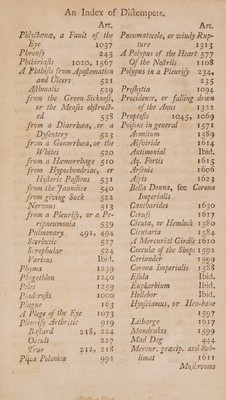 An Index of Distempers.
Art.
Phlyctæna, a Fault of the
Eye 1037
Phrensy 245
Phthiriasis 1020, 1567
A Phthisis from Apostemation
and Ulcers 521
Asthmatic 529
from the Green-Sickness,
or the Menses obstruct-
ed 538
from a Diarrhœa, or a
Dysentery 523
from a Gonorrhœa, or the
Whites 520
from a Hæmorrhage 510
from Hypochondriac, or
Hysteric Passions 531
from the Jaundice 540
from giving Suck 522
Nervous 513
from a Pleurisy, or a Pe-
ripneumonia 539
Pulmonary 491, 494
Scorbutic 527
Scrophular 524
Various Ibid.
Phyma 1259
Phygethlon 1240
Piles 1259
Pladerosis 1000
Plague 163
A Plege of the Eye 1073
Pleurisy Arthritic 919
Bastard 218, 224
Occult 227
True 212, 218
Plica Polonica 992
Art.
Pneumatocele, or windy Rup-
ture 1313
A Polypus of the Heart 577
Of the Nostrils 1108
Polypus in a Pleurisy 234,
235
Presbytia 1094
Procidence, or falling down
of the Anus 1322
Proptosis 1045, 1069
Poisons in general 1571
Aconitum 1589
Æthiroide 1614
Antimonial Ibid.
Aq. Fortis 1615
Arsenic 1606
Aspis 1623
Bella Donna, see Corona
Imperialis
Cantharides 1630
Ceruss 1617
Cicuta, or Hemlock 1580
Cicutaria 1584
A Mercurial Girdle 1610
Cocculæ of the Shops 1592
Coriander 1599
Corona Imperialis 1588
Esula Ibid.
Euphorbium Ibid.
Hellebor Ibid.
Hyosciamus, or Hen-bane
1597
Litharge 1617
Mandrakes 1599
Mad Dog 444
Mercur. præcip. and Sub-
limat 1611
Musrooms